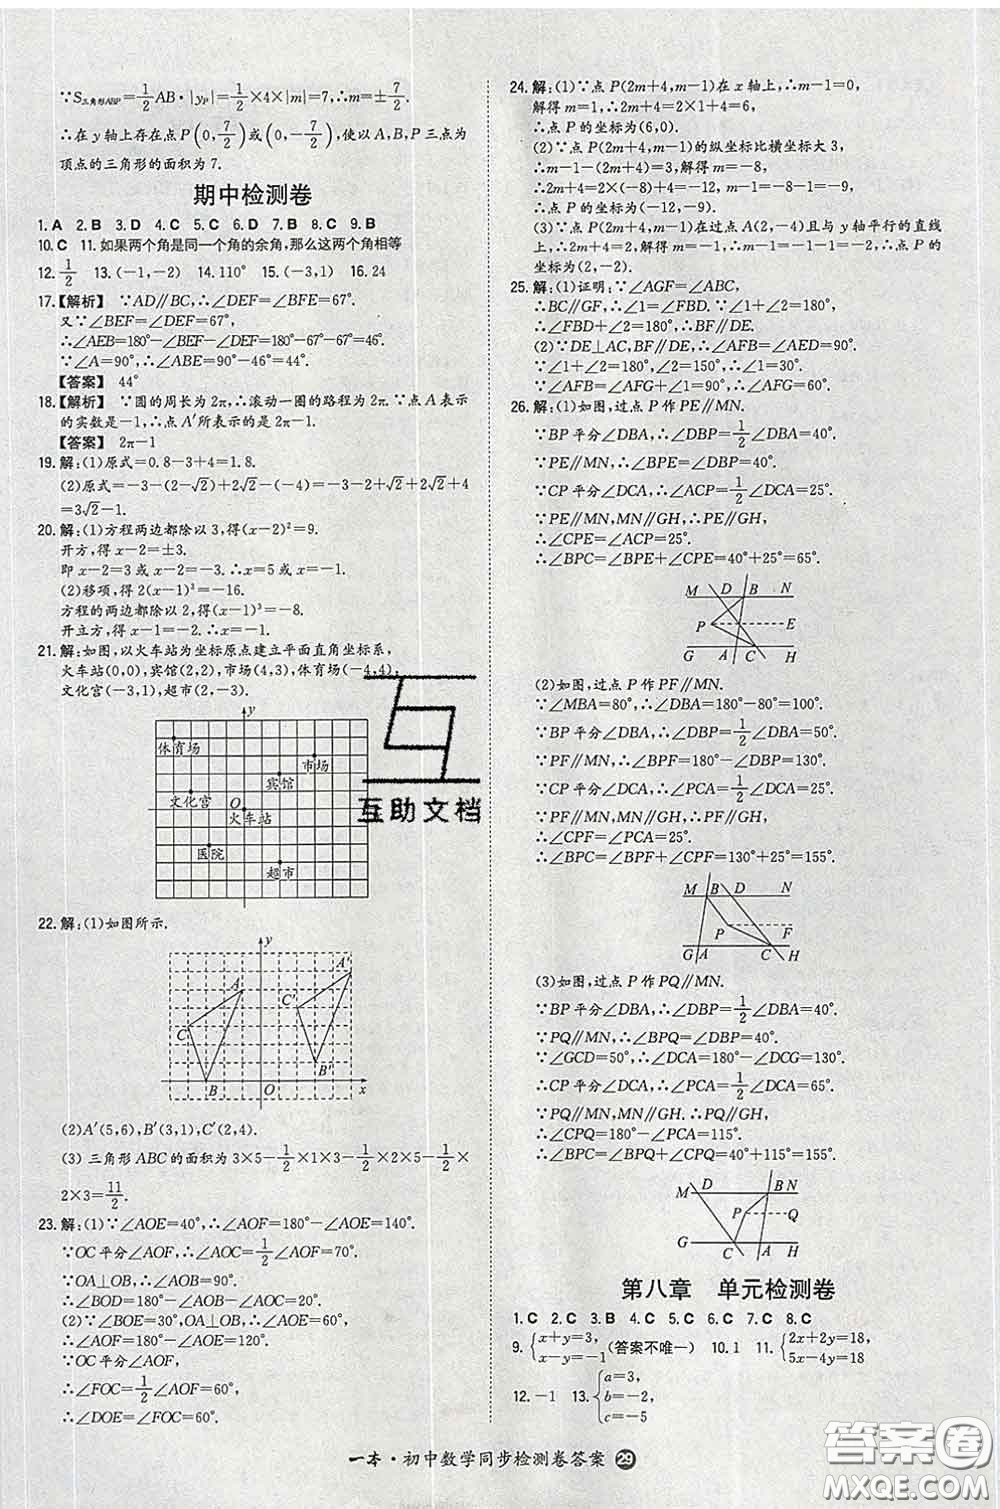 ∵S三角形ABP=1/2AB·|yP|=1/2×4×|m|=7,∴m=±7/2.
∴在y轴上存在点P(0,7/2)或(0,-7/2),使以A,B,P三点为
顶点的三角形的面积为7.
期中检测卷
1.A 2.B 3.D 4.C 5.C 6.D 7.B 8.C 9.B
10.C 11.如果两个角是同一个角的余角,那么这两个角相等
12.1/2 13.(-1,-2) 14.110° 15.(-3,1) 16.24
17.【解析】 ∵AD∥BC,∴∠DEF=∠BFE=67°.
又∵∠BEF=∠DEF=67°,
∴∠AEB=180°-∠BEF-∠DEF=180°-67°-67°=46°.
∵∠A=90°,∴∠ABE=90°-46°=44°.
【答案】 44°
18.【解析】 ∵圆的周长为2π,∴滚动一圈的路程为2π.∵点A表示
的实数是-1,∴点A′所表示的是2π-1.
【答案】 2π-1
19.解:(1)原式=0.8-3+4=1.8.
(2)原式=-3-(2-√2)+2√2-(-4)=-3-2+√2+2√2+4
=3√2-1.
20.解:(1)方程两边都除以3,得(x-2)²=9.
开方,得x-2=±3.
即x-2=3或x-2=-3.∴x=5或x=-1.
(2)移项,得2(x-1)³=-16.
方程的两边都除以2,得(x-1)³=-8.
开立方,得x-1=-2.∴x=-1.
21.解:如图,以火车站为坐标原点建立平面直角坐标系,
火车站(0,0),宾馆(2,2),市场(4,3),体育场(-4,4),
文化宫(-3,1),超市(2,-3).
y
体育场
市场
宾馆
文化宫 O
火车站
医院
超市
22.解:(1)如图所示.
y
A′
A
C′
C
B′
B O x
(2)A′(5,6),B′(3,1),C′(2,4).
(3)三角形ABC的面积为3×5-1/2×1×3-1/2×2×5-1/2×
2×3=11/2.
23.解:(1)∵∠AOE=40°,∴∠AOF=180°-∠AOE=140°.
∵OC平分∠AOF,∴∠AOC=1/2∠AOF=70°.
∵OA⊥OB,∴∠AOB=90°.
∴∠BOD=180°-∠AOB-∠AOC=20°.
(2)∵∠BOE=30°,OA⊥OB,∴∠AOE=60°.
∴∠AOF=180°-∠AOE=120°.
∵OC平分∠AOF,
∴∠FOC=1/2∠AOF=60°.
∴∠DOE=∠FOC=60°.
24.解:(1)∵点P(2m+4,m-1)在x轴上,∴m-1=0.
解得m=1,∴2m+4=2×1+4=6,
∴点P的坐标为(6,0).
(2)∵点P(2m+4,m-1)的纵坐标比横坐标大3,
∴m-1-(2m+4)=3,解得m=-8,
∴2m+4=2×(-8)+4=-12,m-1=-8-1=-9.
∴点P的坐标为(-12,-9).
(3)∵点P(2m+4,m-1)在过点A(2,-4)且与y轴平行的直线
上,∴2m+4=2,解得m=-1,∴m-1=-1-1=-2,∴点P的
坐标为(2,-2).
25.解:(1)证明:∵∠AGF=∠ABC,
∴BC∥GF,∴∠1=∠FBD.∵∠1+∠2=180°,
∴∠FBD+∠2=180°,∴BF∥DE.
(2)∵DE⊥AC,BF∥DE,∴∠AFB=∠AED=90°.
∵∠1+∠2=180°,∠2=150°,∴∠1=30°.
∵∠AFB=∠AFG+∠1=90°,∴∠AFG=60°.
26.解:(1)如图,过点P作PE∥MN.
∵BP平分∠DBA,∴∠DBP=1/2∠DBA=40°.
∵PE∥MN,∴∠BPE=∠DBP=40°.
∵CP平分∠DCA,∴∠ACP=1/2∠DCA=25°.
∵PE∥MN,MN∥GH,∴PE∥GH,
∴∠CPE=∠ACP=25°.
∴∠BPC=∠BPE+∠CPE=40°+25°=65°.
M D B N
P E
G A C H
(2)如图,过点P作PF∥MN.
∵∠MBA=80°,∴∠DBA=180°-80°=100°.
∵BP平分∠DBA,∴∠DBP=1/2∠DBA=50°.
∵PF∥MN,∴∠BPF=180°-∠DBP=130°.
∵CP平分∠DCA,∴∠PCA=1/2∠DCA=25°.
∵PF∥MN,MN∥GH,∴PF∥GH,
∴∠CPF=∠PCA=25°.
∴∠BPC=∠BPF+∠CPF=130°+25°=155°.
M B D N
P F
G A C H
(3)如图,过点P作PQ∥MN.
∵BP平分∠DBA,∴∠DBP=1/2∠DBA=40°.
∵PQ∥MN,∴∠BPQ=∠DBP=40°.
∵∠GCD=50°,∴∠DCA=180°-∠DCG=130°.
∵CP平分∠DCA,∴∠PCA=1/2∠DCA=65°.
∵PQ∥MN,MN∥GH,∴PQ∥GH,
∴∠CPQ=180°-∠PCA=115°.
∴∠BPC=∠BPQ+∠CPQ=40°+115°=155°.
M D B N
P Q
G C A H
第八章 单元检测卷
1.C 2.C 3.B 4.C 5.C 6.C 7.C 8.C
9.{x+y=3, x-y=-1(答案不唯一) 10.1 11.{2x+2y=18, 5x-4y=18
12.-1 13.{a=3, b=-2, c=-5
一本·初中数学同步检测卷答案 29
互助文档
答案圈
MXQE.COM